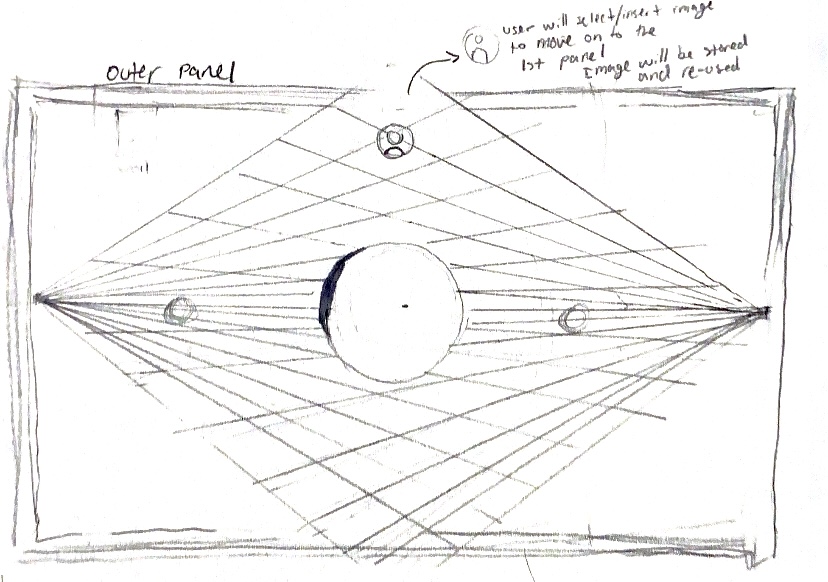 outer panel
user will select/insert image
to move on to the
1st panel
Image will be stored
and re-used